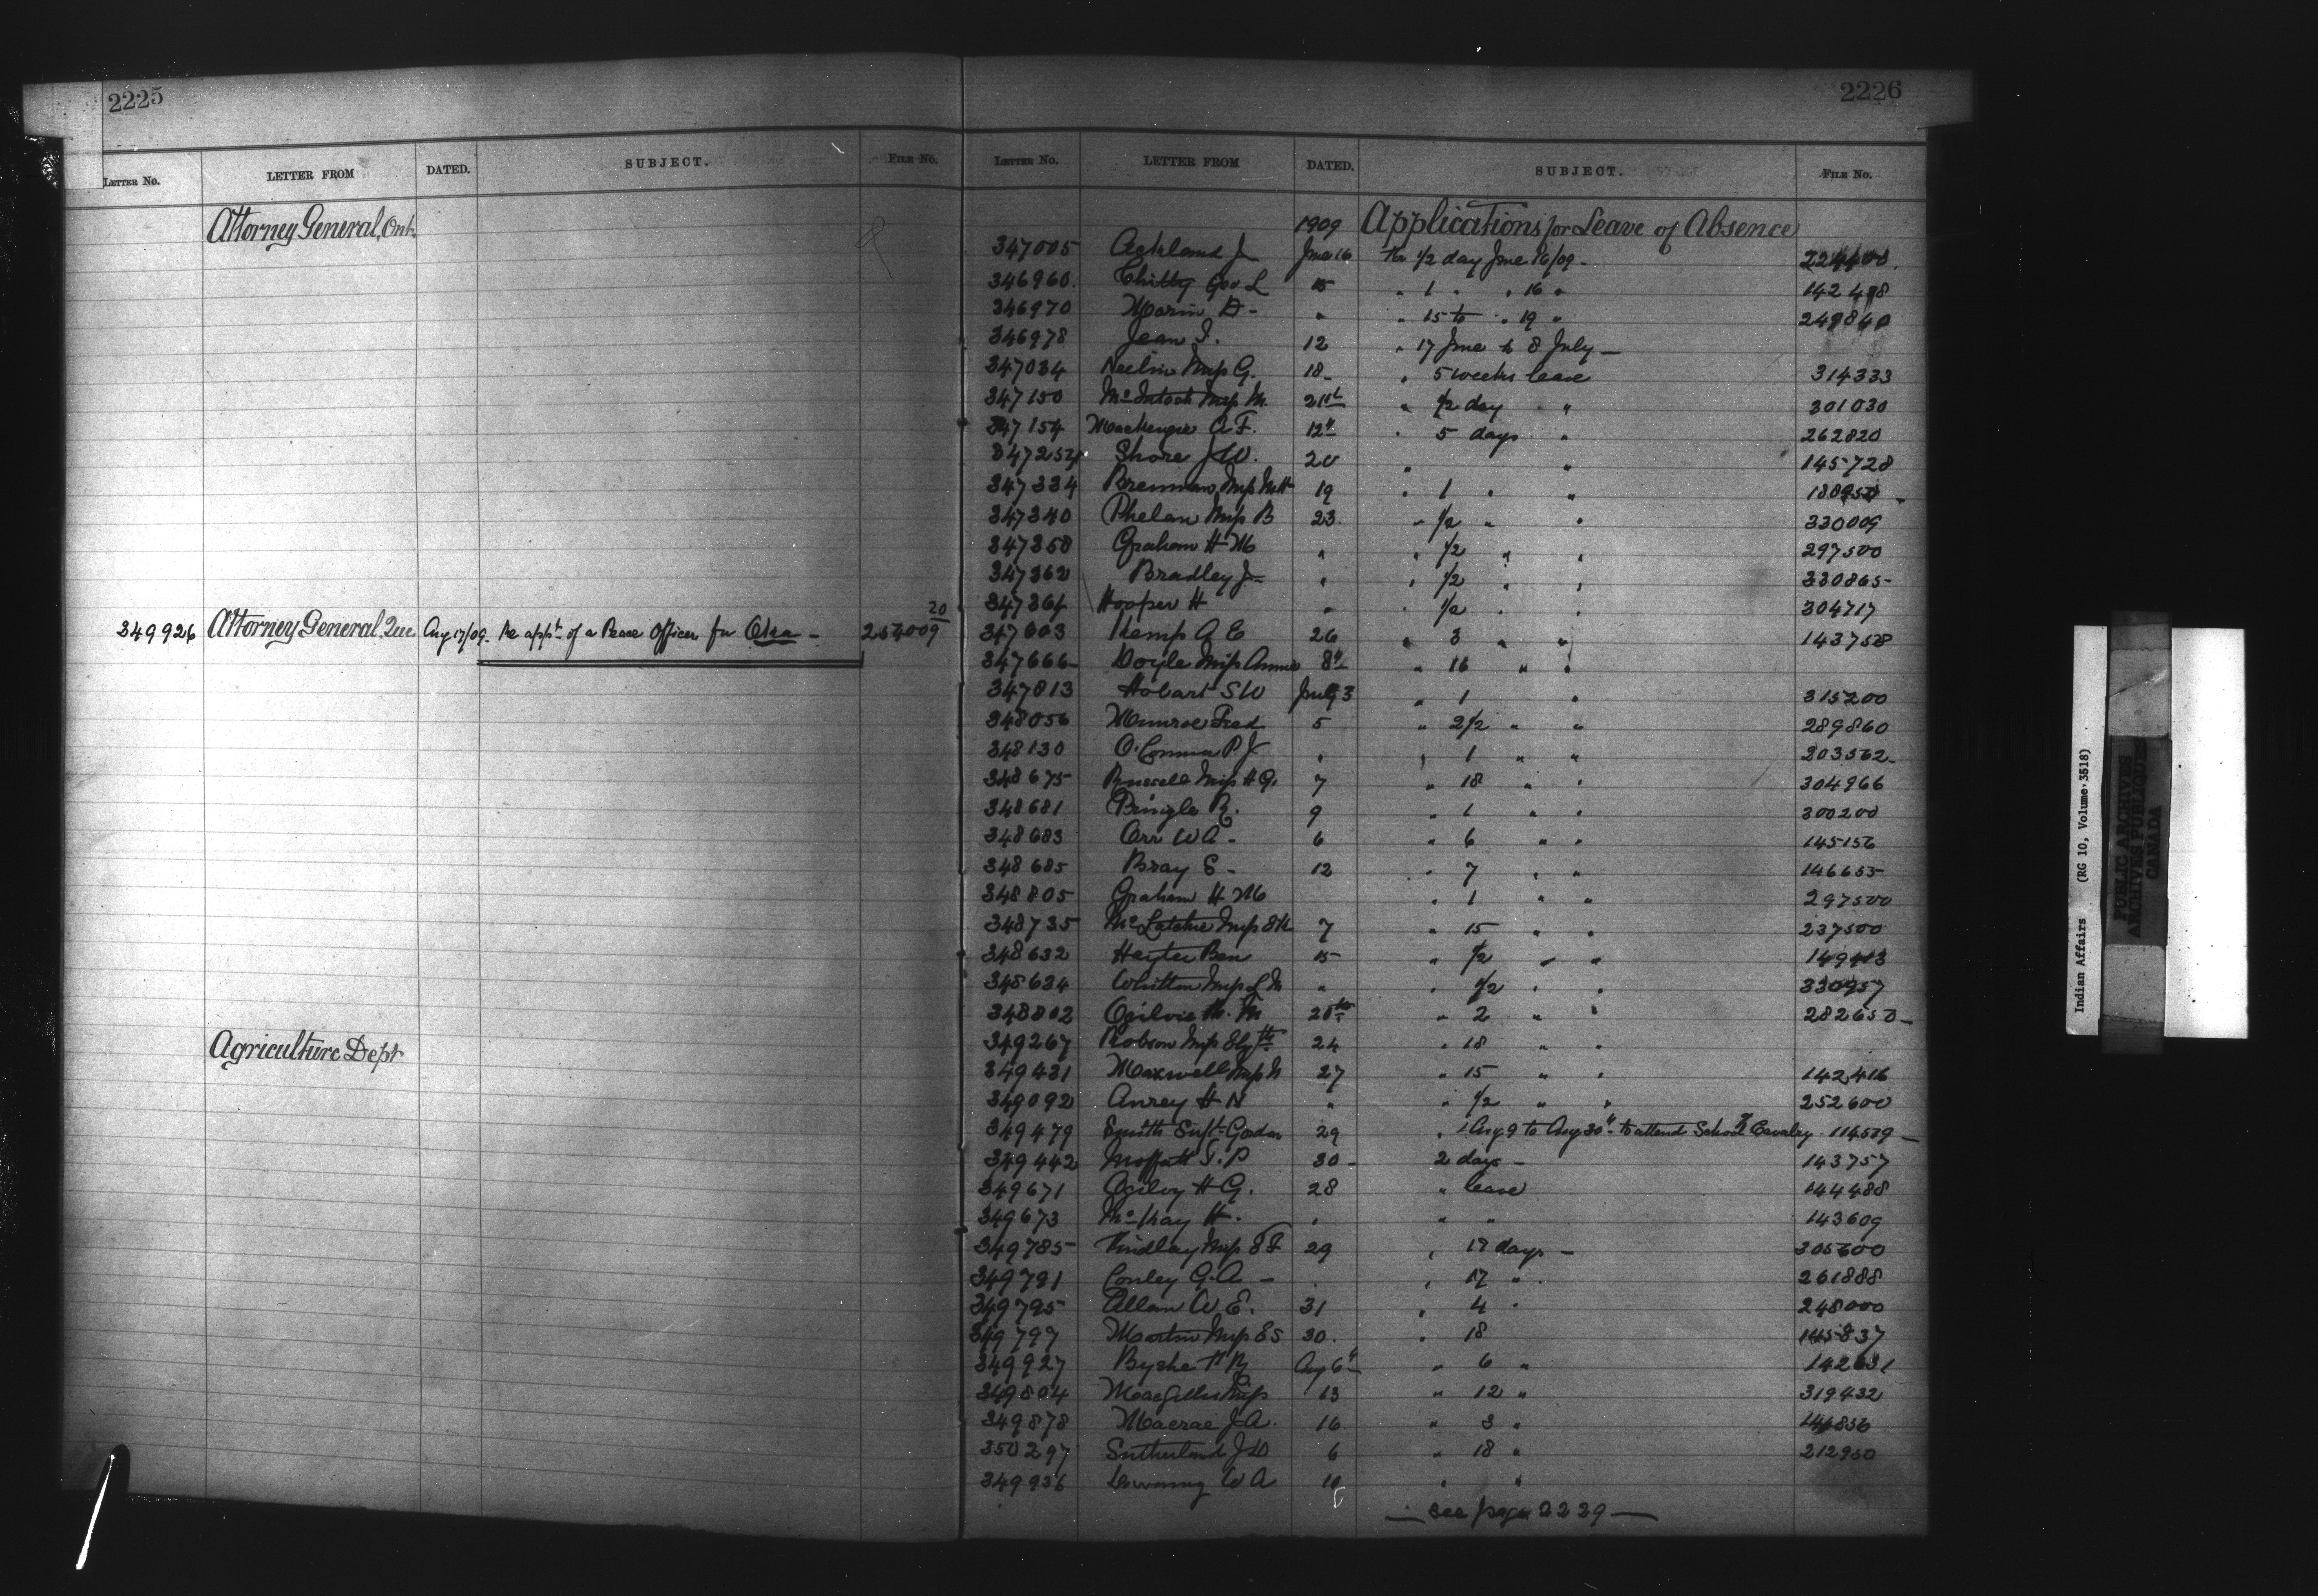 2225
LETTER NO. LETTER FROM DATED. SUBJECT. FILE NO.
Attorney General, Ont.
349926 Attorney General, Que Aug 17/09 Re appt of a Peace Officer for Oka - 254009 20
Agriculture Dept
2226
LETTER NO. LETTER FROM DATED. SUBJECT. FILE NO.
1909 Applications for Leave of Absence
347005 Ackland J June 16 For 1/2 day June 16/09 -
346960 Chitty Geo L 15 " 1 " " 16 " 142498
346970 Morin D - " " 15 to " 19 " 249840
346978 Jean I. 12 " 17 June to 8 July -
347034 Neelin Miss G. 18 - " 5 weeks leave 314333
347150 McIntosh Miss M. 21st " 1/2 day " 301030
347154 Mackenzie A F. 12" " 5 days " 262820
347254 Shore J W. 20 " " 145728
347334 Brennan Miss M H 19 " 1 " "
347340 Phelan Miss B 23 " 1/2 " " 330009
347358 Graham H M " " 1/2 " " 297500
347362 Bradley J - " " 1/2 " " 330865
347364 Hooper H " " 1/2 " " 304717
347603 Kemp A E 26 " 3 " " 143758
347666 Doyle Miss Annie 8" " 16 " "
347813 Hobart S W July 3 " 1 " 315200
348056 Munroe Fred 5 " 2 1/2 " " 289860
348130 O'Connor P J " " 1 " " 203562
348675 Russell Miss H G. 7 " 18 " " 304966
348681 Pringle R. 9 " 1 " " 300200
348683 Orr W A - 6 " 6 " " 145156
348685 Bray E - 12 " 7 " " 146655
348805 Graham H M " 1 " " 297500
348735 McLatchie Miss 7 " 15 " " 237500
348632 Hayter Ben 15 " 1/2 " " 149413
348624 Whitton Miss L M " " 1/2 " " 330957
348802 Ogilvie M. 20th " 2 " " 282650 -
349267 Robson Miss Elizth 24 " 18 " "
349431 Maxwell Miss N 27 " 15 " " 142416
349092 Awrey H N " " 1/2 " " 252600
349479 Smith Supt. Gordon 29 " Aug 9 to Aug 30" to attend School of Cavalry 114509 -
349442 Moffatt T. P 30 - 2 days - 143757
349671 Ogilvy H G. 28 " leave 144488
349673 McKay H. " " " 143609
349785 Findlay Miss E F 29 " 17 days - 305600
349791 Conley G. A - " " 17 " 261888
349795 Allan W E. 31 " 4 " 248000
349797 Martin Miss E S 30. " 18 145837
349927 Byshe H R Aug 6" " 6 " 142631
349804 MacGillis Miss 13 " 12 " 319432
349878 Macrae J. A. 16 " 3 "
350297 Sutherland J D 6 " 18 " 212950
349936 W A 10 " "
- see page 2229 -
Indian Affairs (RG 10, Volume 3518)
PUBLIC ARCHIVES
ARCHIVES PUBLIQUES
CANADA